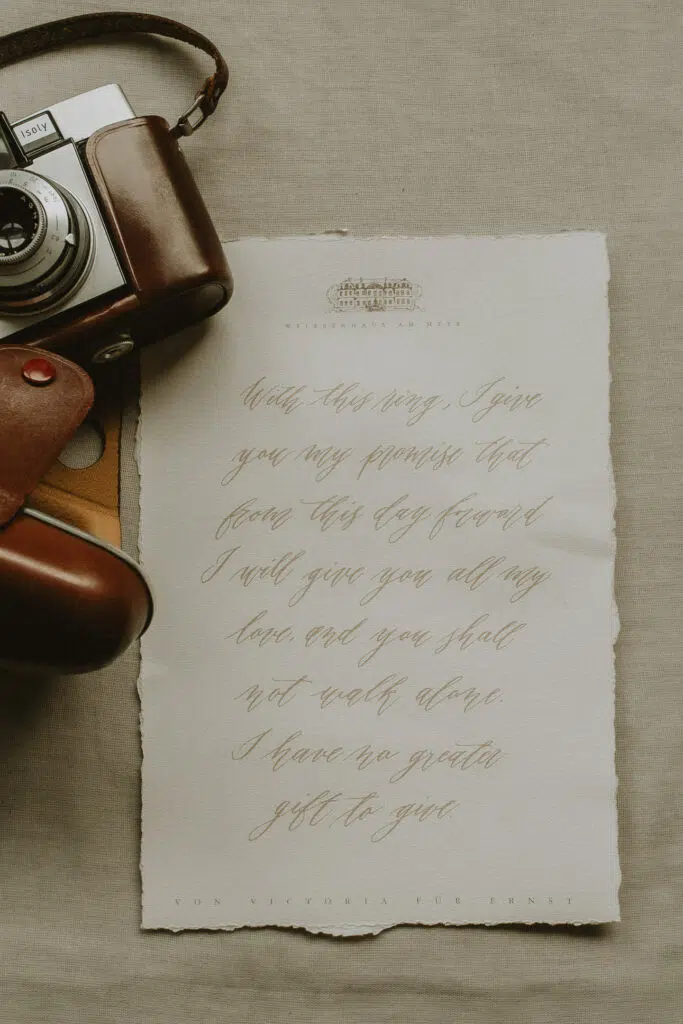 Isoly
WEISSENHAUS AM MEER
With this ring, I give
you my promise that
from this day forward
I will give you all my
love, and you shall
not walk alone.
I have no greater
gift to give.
VON VICTORIA FÜR ERNST